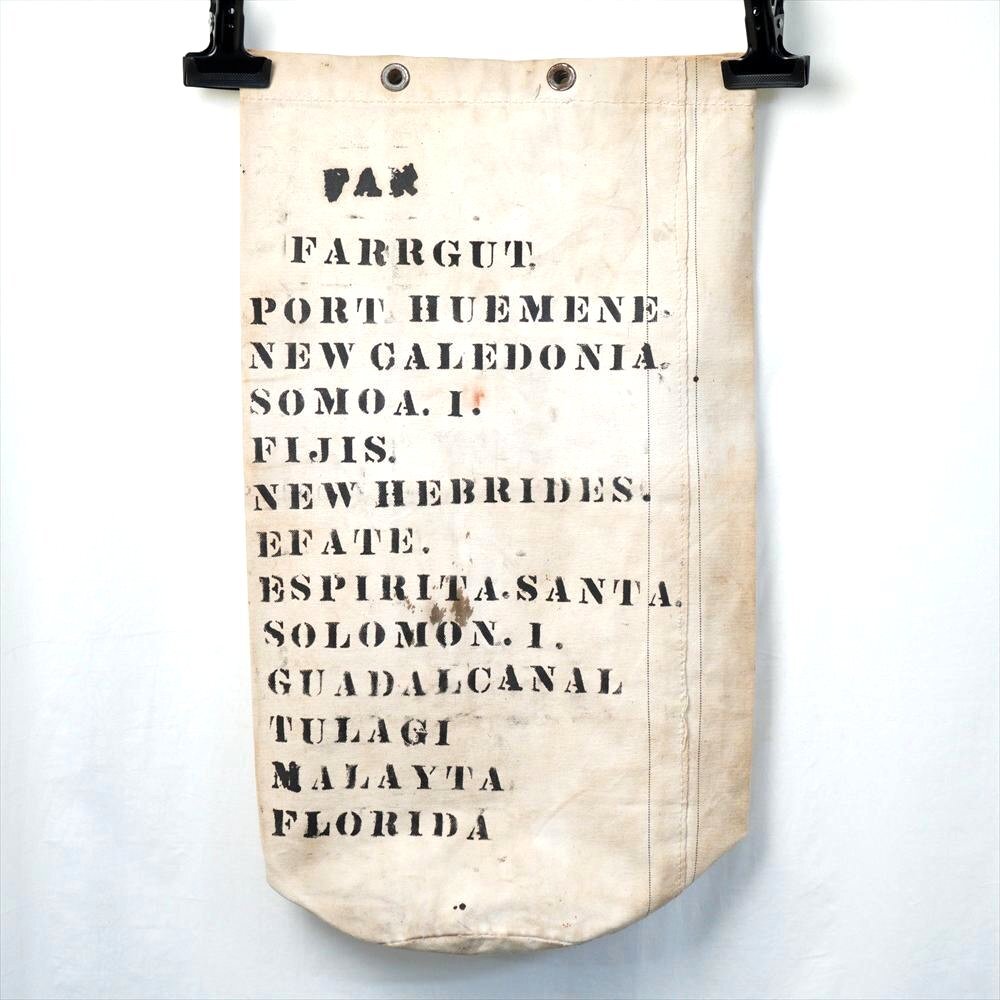 FAR
FARRGUT.
PORT HUEMENE.
NEW CALEDONIA.
SOMOA. I.
FIJIS.
NEW HEBRIDES.
EFATE.
ESPIRITA. SANTA.
SOLOMON. I.
GUADALCANAL
TULAGI
MALAYTA
FLORIDA